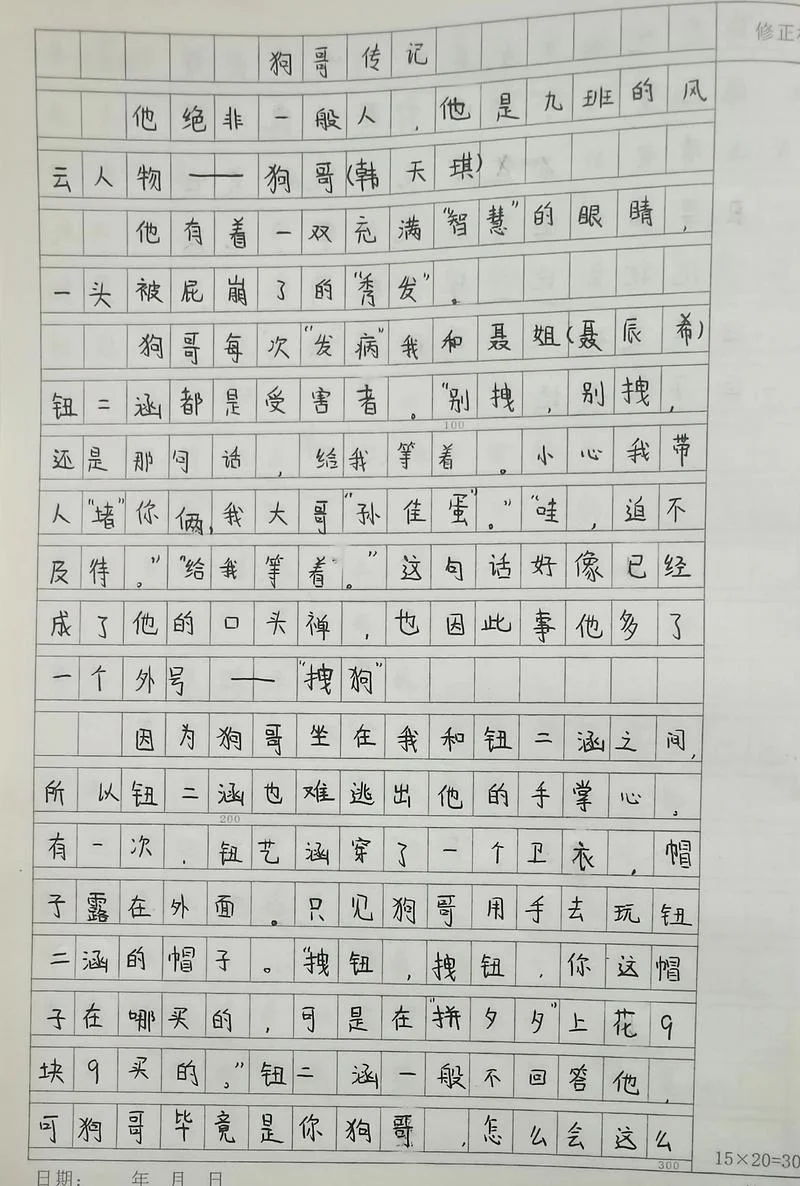 修正
狗哥传记
他绝非一般人，他是九班的风
云人物——狗哥(韩天琪)
他有着一双充满“智慧”的眼睛，
一头被屁崩了的“秀发”。
狗哥每次“发病”我和聂姐(聂辰希)
钮二涵都是受害者。“别拽，别拽，
还是那句话，给我等着。小心我带
人“堵”你俩，我大哥“孙佳蛋”。”“哇，迫不
及待。”“给我等着。”这句话好像已经
成了他的口头禅，也因此事他多了
一个外号——“拽狗”
因为狗哥坐在我和钮二涵之间，
100
所以钮二涵也难逃出他的手掌心。
200
有一次，钮艺涵穿了一个卫衣，帽
子露在外面。只见狗哥用手去玩钮
二涵的帽子。“拽钮，拽钮，你这帽
子在哪买的，可是在“拼夕夕”上花9
块9买的。”钮二涵一般不回答他，
可狗哥毕竟是你狗哥，怎么会这么
300
15×20=30
日期： 年 月 日